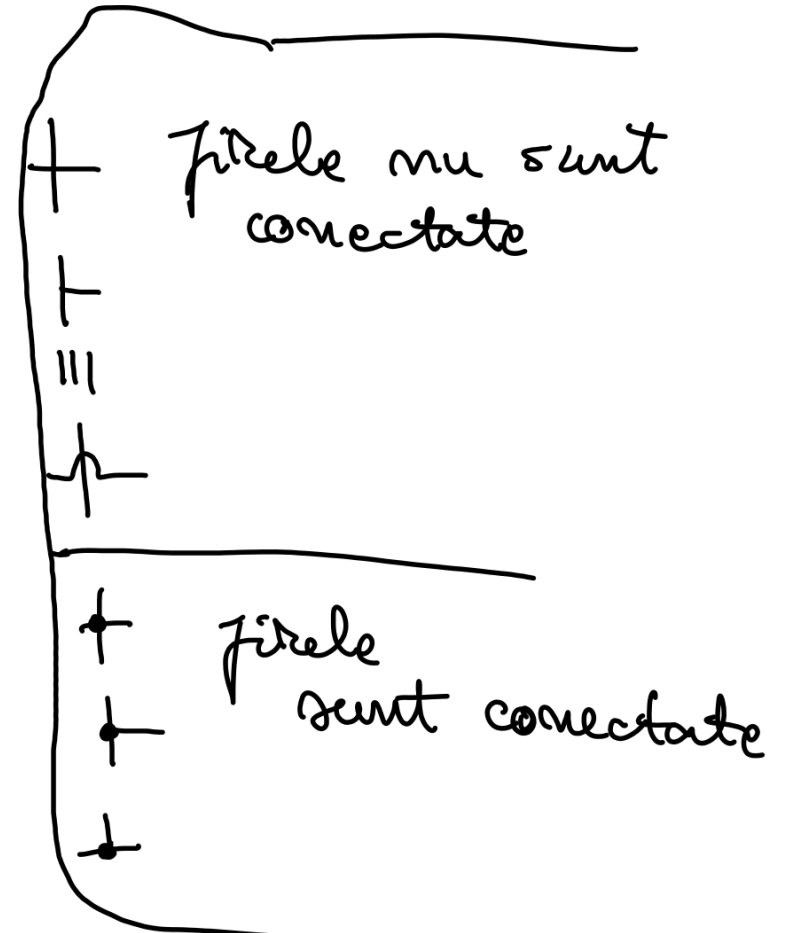 firele nu sunt
conectate
firele
sunt conectate